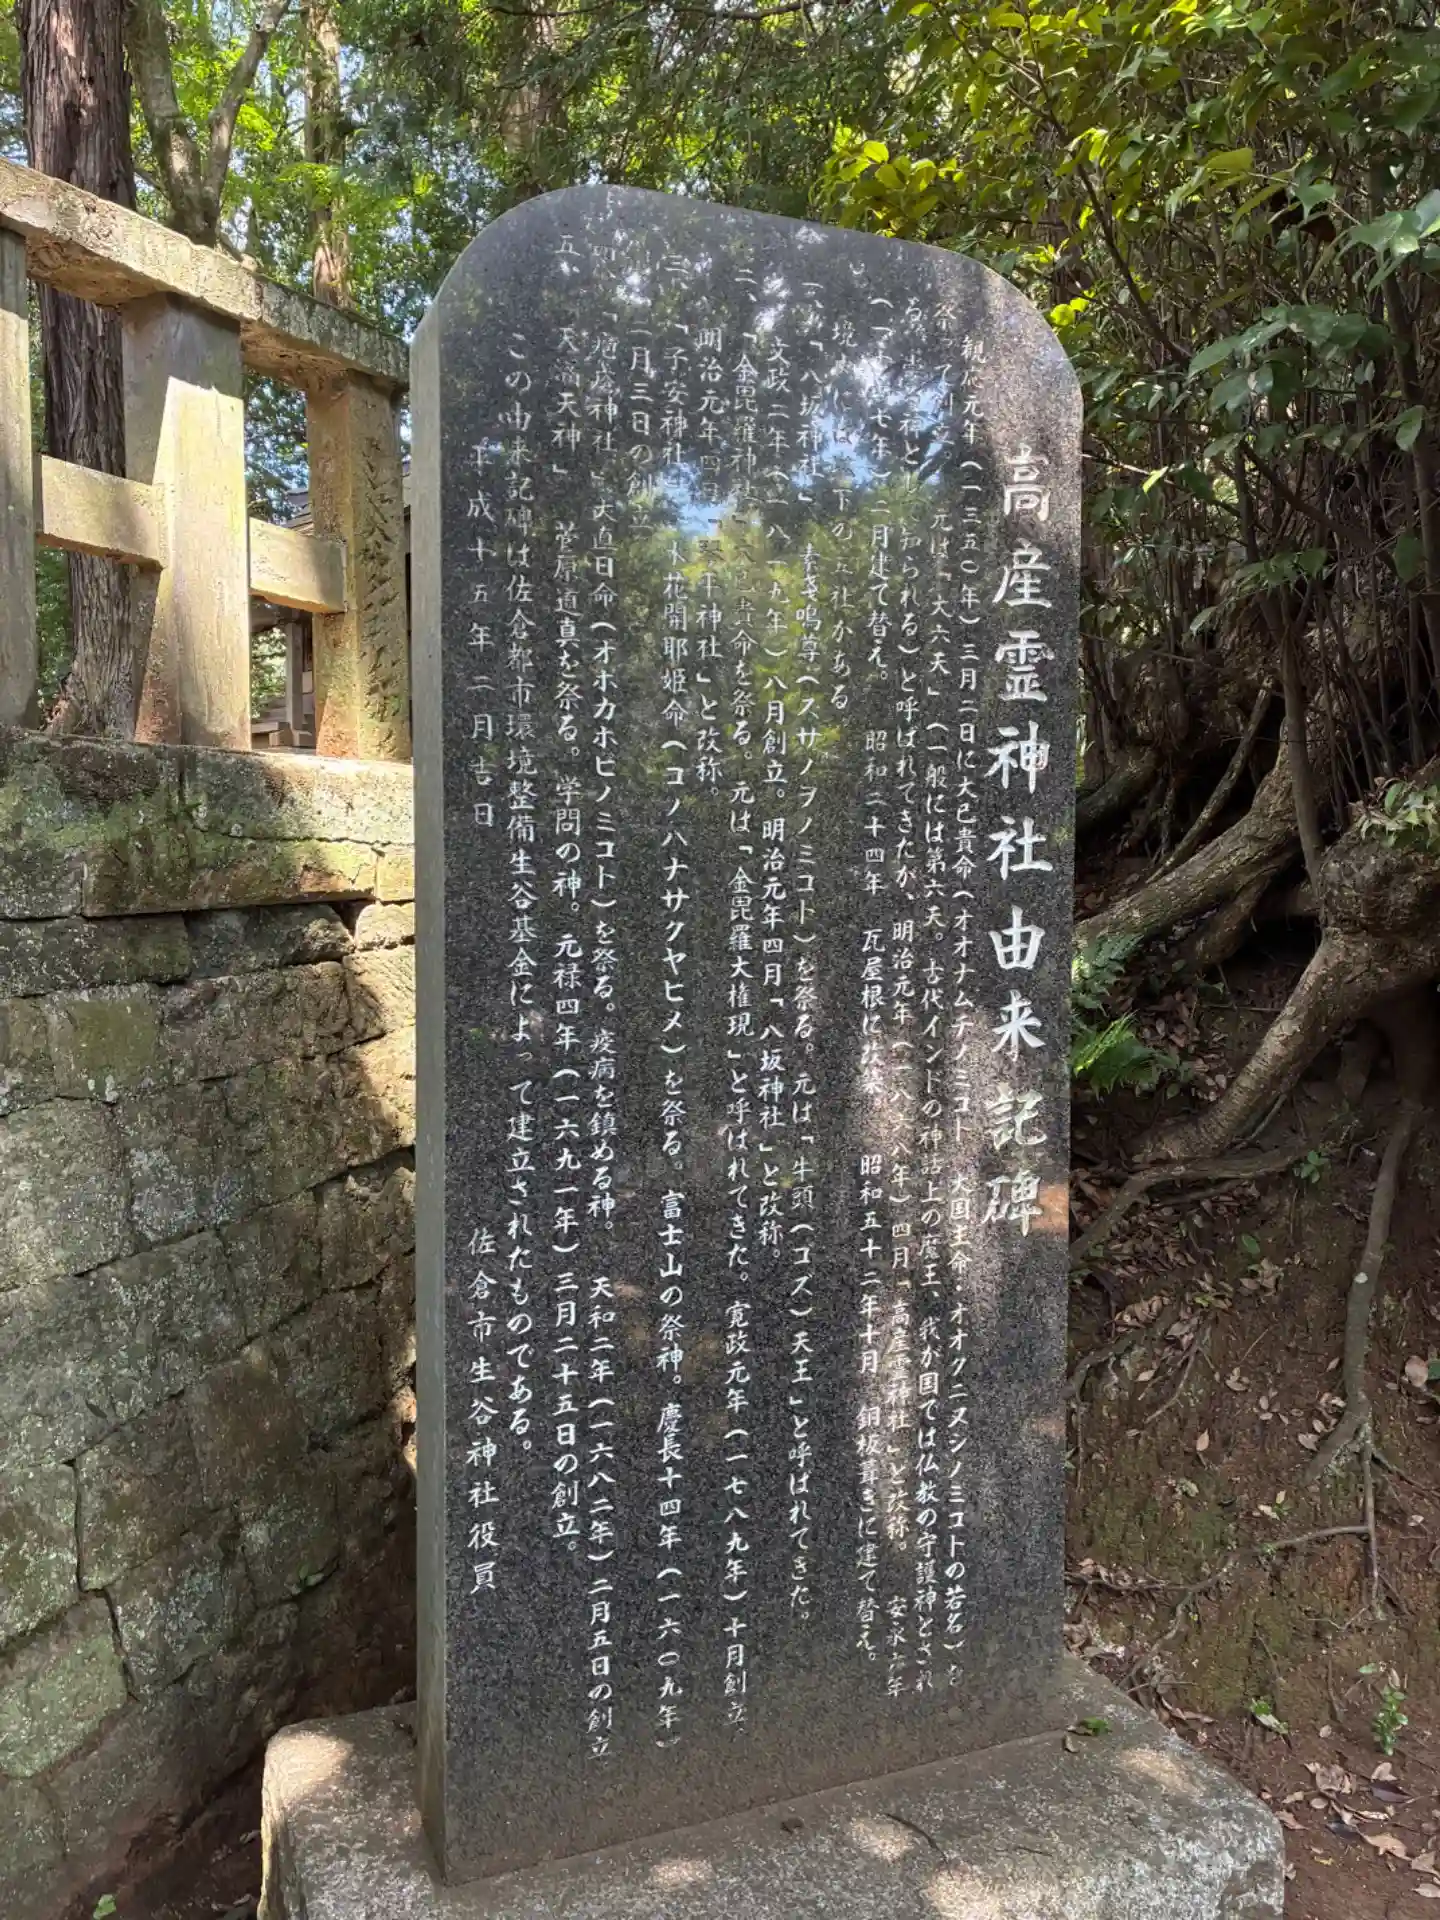 高産霊神社由来記碑
観応元年(一三五〇年)三月二日に大已貴命(オオナムチノミコト 大国主命・オオクニヌシノミコトの若名)を
祭って 元は「大六天」(一般には第六天。古代インドの神話上の魔王、我が国では仏教の守護神とされ
知られる)と呼ばれてきたが、明治元年(一八六八年)四月「高産霊神社」と改称。 安永六年
七年)二月建て替え。 昭和二十四年 瓦屋根に改築。 昭和五十二年十月 銅板葺きに建て替え。
境内には 下の五社がある
一、「八坂神社」 素戔嗚尊(スサノヲノミコト)を祭る。元は「牛頭(ゴズ)天王」と呼ばれてきた。
文政二年(一八一九年)八月創立。明治元年四月「八坂神社」と改称。
二、「金毘羅神社」 大已貴命を祭る。元は「金毘羅大権現」と呼ばれてきた。寛政元年(一七八九年)十月創立。
明治元年四月「琴平神社」と改称。
三、「子安神社」 木花開耶姫命(コノハナサクヤヒメ)を祭る。富士山の祭神。慶長十四年(一六〇九年)
二月三日の創立
四、「疱瘡神社」 大直日命(オホカホヒノミコト)を祭る。疫病を鎮める神。 天和二年(一六八二年)二月五日の創立
五、「天満天神」 菅原道真を祭る。学問の神。元禄四年(一六九一年)三月二十五日の創立。
この由来記碑は佐倉都市環境整備生谷基金によって建立されたものである。
平成十五年二月吉日 佐倉市生谷神社役員